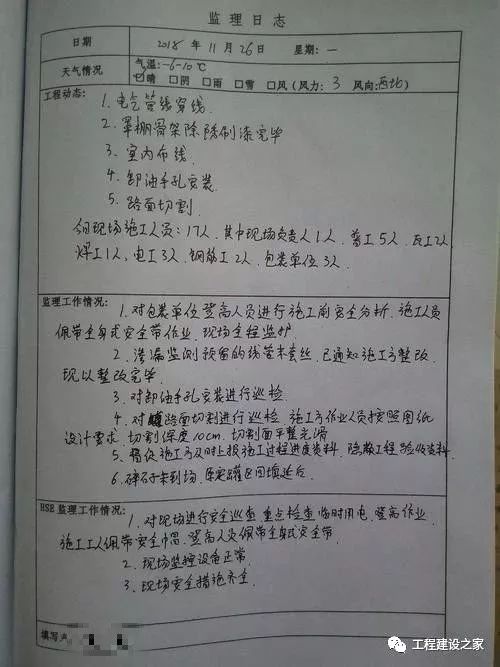 监理日志
日期 2018年11月26日 星期：一
天气情况 气温：-6-10℃
☑晴 □阴 □雨 □雪 □风（风力：3 风向：西北）
工程动态：
1. 电气管线穿线
2. 罩棚骨架除锈刷漆完毕
3. 室内布线
4. 卸油手孔安装
5. 路面切割
今日现场施工人员：17人，其中现场负责人1人，普工5人，瓦工2人
焊工1人，电工3人，钢筋工2人，包装单位3人
监理工作情况：
1. 对包装单位登高人员进行施工前安全分析，施工人员
佩带全身式安全带作业，现场全程监护
2. 渗漏监测预留的线管未套丝，已通知施工方整改，
现以整改完毕
3. 对卸油手孔安装进行巡检
4. 对路面切割进行巡检，施工方作业人员按照图纸
设计需求，切割深度10cm，切割面平整光滑
5. 督促施工方及时上报施工过程进度资料，隐蔽工程验收资料
6. 碎石子未到场，罐区回填延后
HSE监理工作情况：
1. 对现场进行安全巡查，重点检查临时用电，登高作业
施工工人佩带安全帽，登高人员佩带全身式安全带
2. 现场监控设备正常
3. 现场安全措施齐全
填写
工程建设之家